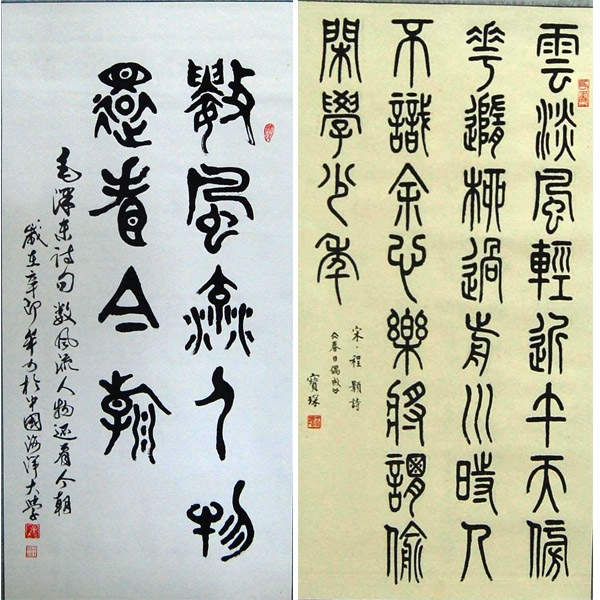 數風流人物
還看今朝
毛澤东诗句数风流人物还看今朝
歲在辛卯年书於中國海洋大學
雲淡風輕近午天傍
花隨柳過前川時人
不識余心樂將謂偷
閑學少年
宋·程顥詩
《春日偶成》
寶琛